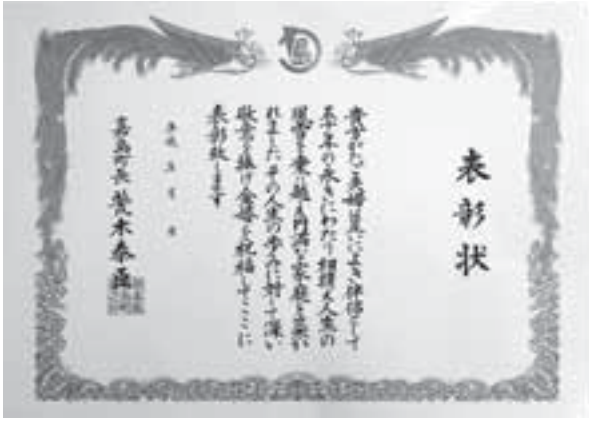 表彰状
貴方がたご夫婦は互によき伴侶として
五十年の永きにわたり相携え人生の
風雪を乗り越え円満な家庭を築か
れましたその人生の歩みに対して深い
敬意を捧げ金婚を祝福してここに
表彰致します
平成
嘉島町長 荒木泰臣